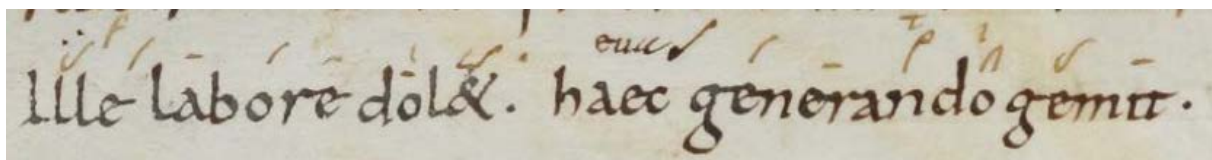 Ille labore dol&. haec generando gemit.
eua